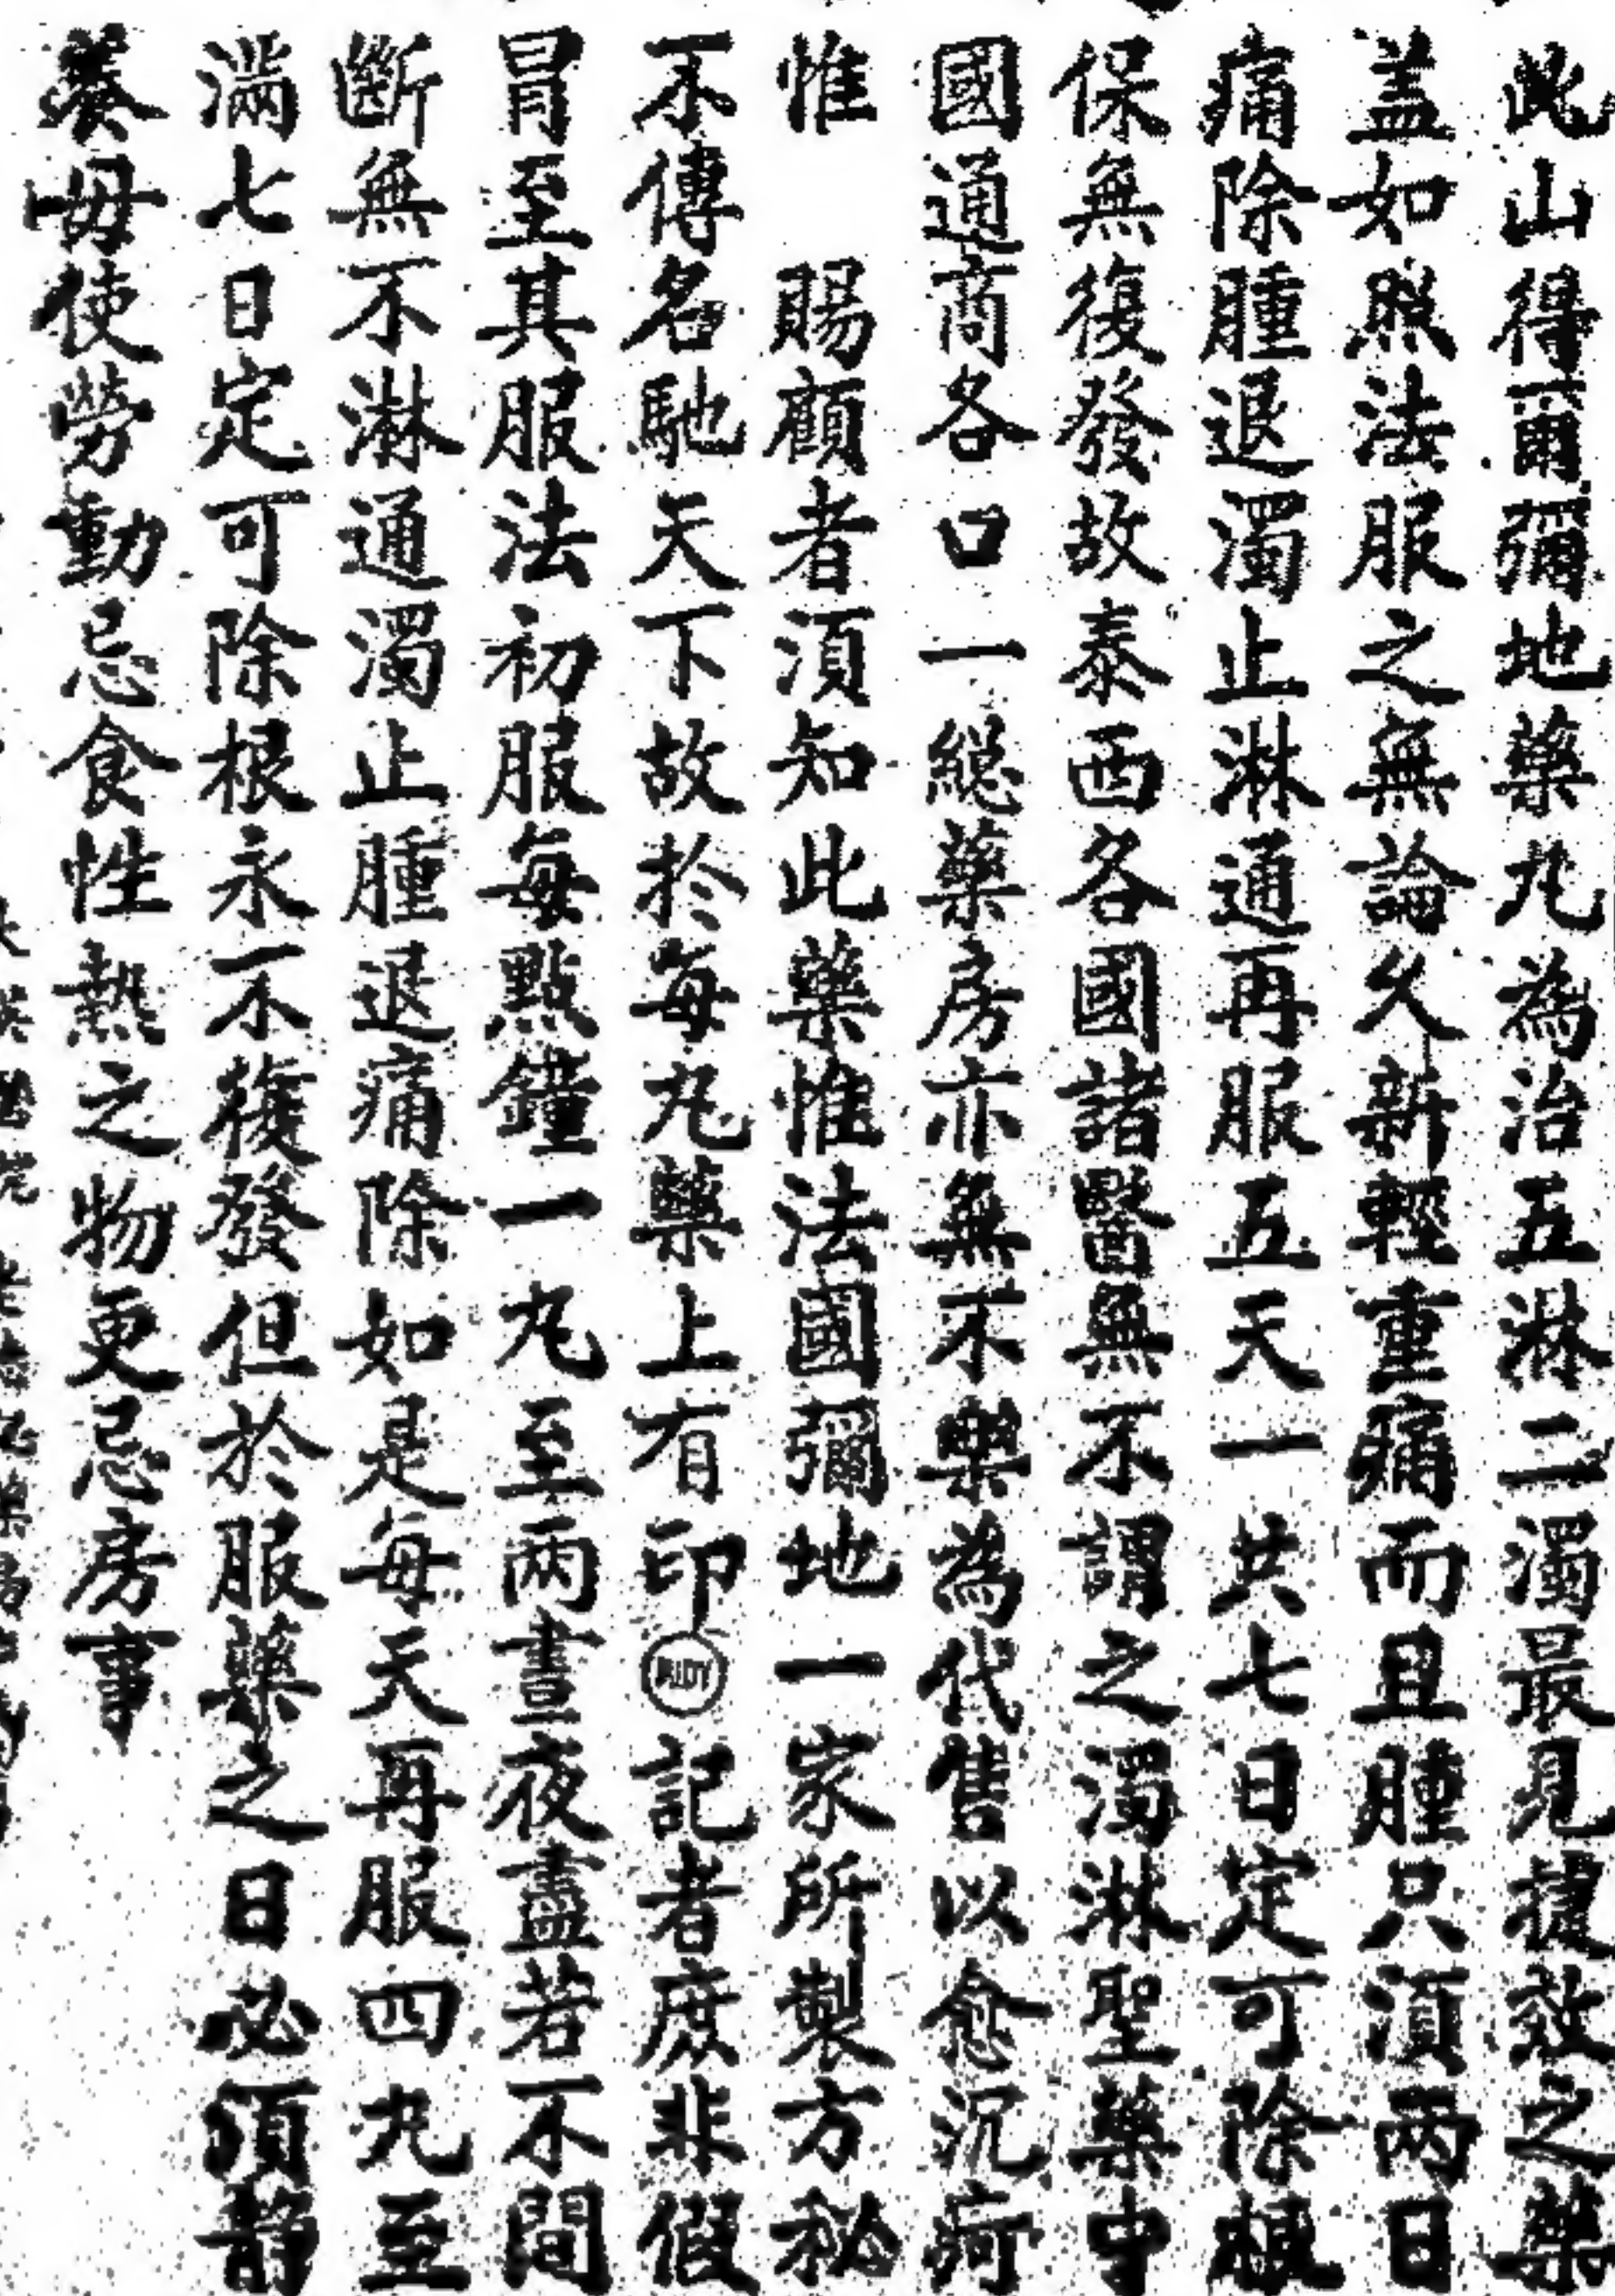 此山得爾彌地藥丸為治五淋二濁最見捷效之藥
盖如照法服之無論久新輕重痛而且腫只須兩日
痛除腫退濁止淋通再服五天一共七日定可除根
保無復發故泰西各國諸醫無不謂之濁淋聖藥中
國通商各口一總藥房亦無不樂為代售以愈沉疴
惟　賜顧者須知此藥惟法國彌地一家所製方秘
不傳名馳天下故於每丸藥上有印MIDY記者庶非假
冒至其服法初服每點鐘一丸至兩晝夜盡若不間
斷無不淋通濁止腫退痛除如是每天再服四丸至
滿七日定可除根永不復發但於服藥之日必須靜
養毋使勞動忌食性熱之物更忌房事